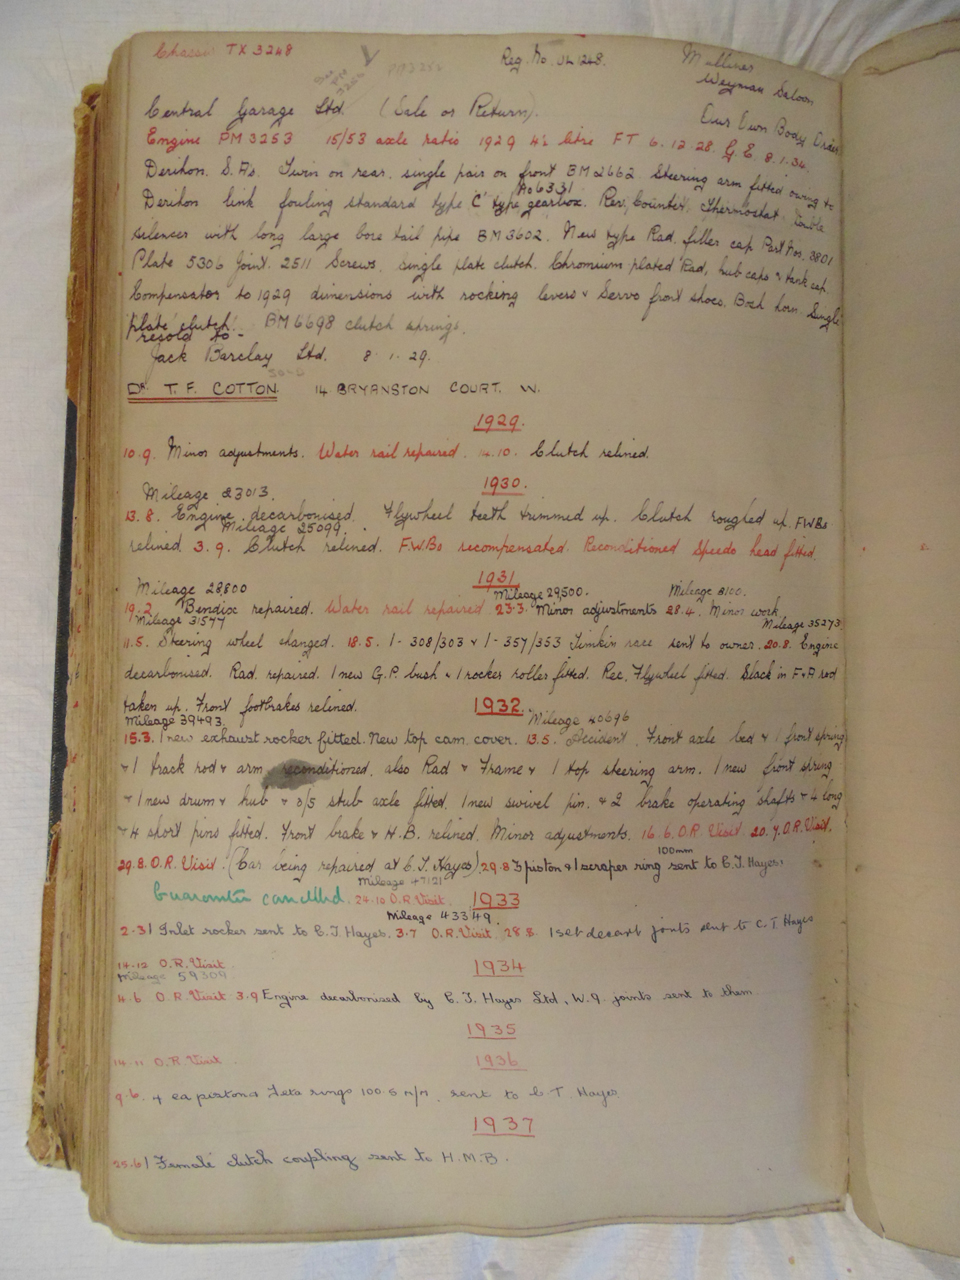 Chassis TX 3248
Reg. No. UL 1248.
Mulliner
Weyman Saloon
Our Own Body Order
Central Garage Ltd. (Sale or Return).
Engine PM 3253 15/53 axle ratio 1929 4½ litre FT 6.12.28. G.E. 8.1.34.
Derihon. S.As. Twin on rear, single pair on front BM 2662. Steering arm fitted owing to
No 6331
Derihon link fouling standard type 'C' type gearbox. Rev. Counter. Thermostat. Double
silencer with long large bore tail pipe BM 3602. New type Rad. filler cap Part Nos. 3801
Plate 5306 Joint. 2511 Screws, single plate clutch. Chromium plated Rad, hub caps & tank cap.
Compensator to 1929 dimensions with rocking levers & Servo front shoes. Bosch horn. Single
'plate clutch'. BM 6698 clutch springs.
resold to -
Jack Barclay Ltd. 8.1.29.
Dr. T. F. COTTON. 14 BRYANSTON COURT. W.
1929.
10.9. Minor adjustments. Water rail repaired. 14.10. Clutch relined.
1930.
Mileage 23013.
13.8. Engine decarbonised. Flywheel teeth trimmed up. Clutch roughed up. FWBs
Mileage 25099.
relined. 3.9. Clutch relined. F.W.Bs recompensated. Reconditioned Speedo head fitted.
1931
Mileage 28,800 Mileage 29,500. Mileage 8100.
19.2. Bendix repaired. Water rail repaired 23.3. Minor adjustments 28.4. Minor work
Mileage 31577 Mileage 35273
11.5. Steering wheel changed. 18.5. 1-308/303 & 1-357/353 Timkin race sent to owner. 20.8. Engine
decarbonised. Rad. repaired. 1 new G.P. bush & 1 rocker roller fitted. Rec. Flywheel fitted. Slack in F&A rod
taken up. Front footbrakes relined.
1932.
Mileage 39493. Mileage 40696
15.3. 1 new exhaust rocker fitted. New top cam cover. 13.5. Accident. Front axle bed & 1 front spring
& 1 track rod & arm reconditioned, also Rad & Frame & 1 top steering arm. 1 new front spring
& 1 new drum & hub & o/s stub axle fitted. 1 new swivel pin. & 2 brake operating shafts & 4 long
& 4 short pins fitted. Front brake & H.B. relined. Minor adjustments. 16.6. O.R. Visit. 20.7. O.R. Visit.
100mm
29.8. O.R. Visit. (Car being repaired at C.T. Hayes). 29.8 3 piston & 1 scraper ring sent to C.T. Hayes.
Mileage 47121
Guarantee cancelled. 24.10 O.R. Visit.
1933
Mileage 43349.
2.3 1 Inlet rocker sent to C.T Hayes. 3.7 O.R. Visit. 28.8. 1 set decarb joints sent to C.T Hayes
14.12 O.R. Visit
1934
Mileage 59309
4.6 O.R. Visit 3.9 Engine decarbonised by C.T. Hayes Ltd, W.9. joints sent to them
1935
14.11 O.R. Visit.
1936
9.6. 4 ea pistons & rings 100.5 m/m. sent to C T. Hayes
1937
25.6 1 Female clutch coupling sent to H.M.B.